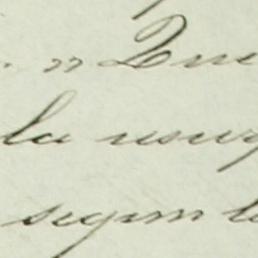 . » Que
la usur
segun l